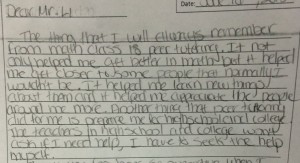 Dear Mr. Li
Date:
The thing that I will always remember
from math class is peer tutoring. It not
only helped me get better in math but it helped
me get closer to some people that normally I
wouldn't be. It helped me learn new things
about them and it helped me appreciate the people
around me more. Another thing that peer tutoring
did for me is prepare me for highschool and college.
The teachers in highschool and college won't
ask if I need help, I have to seek the help
myself.